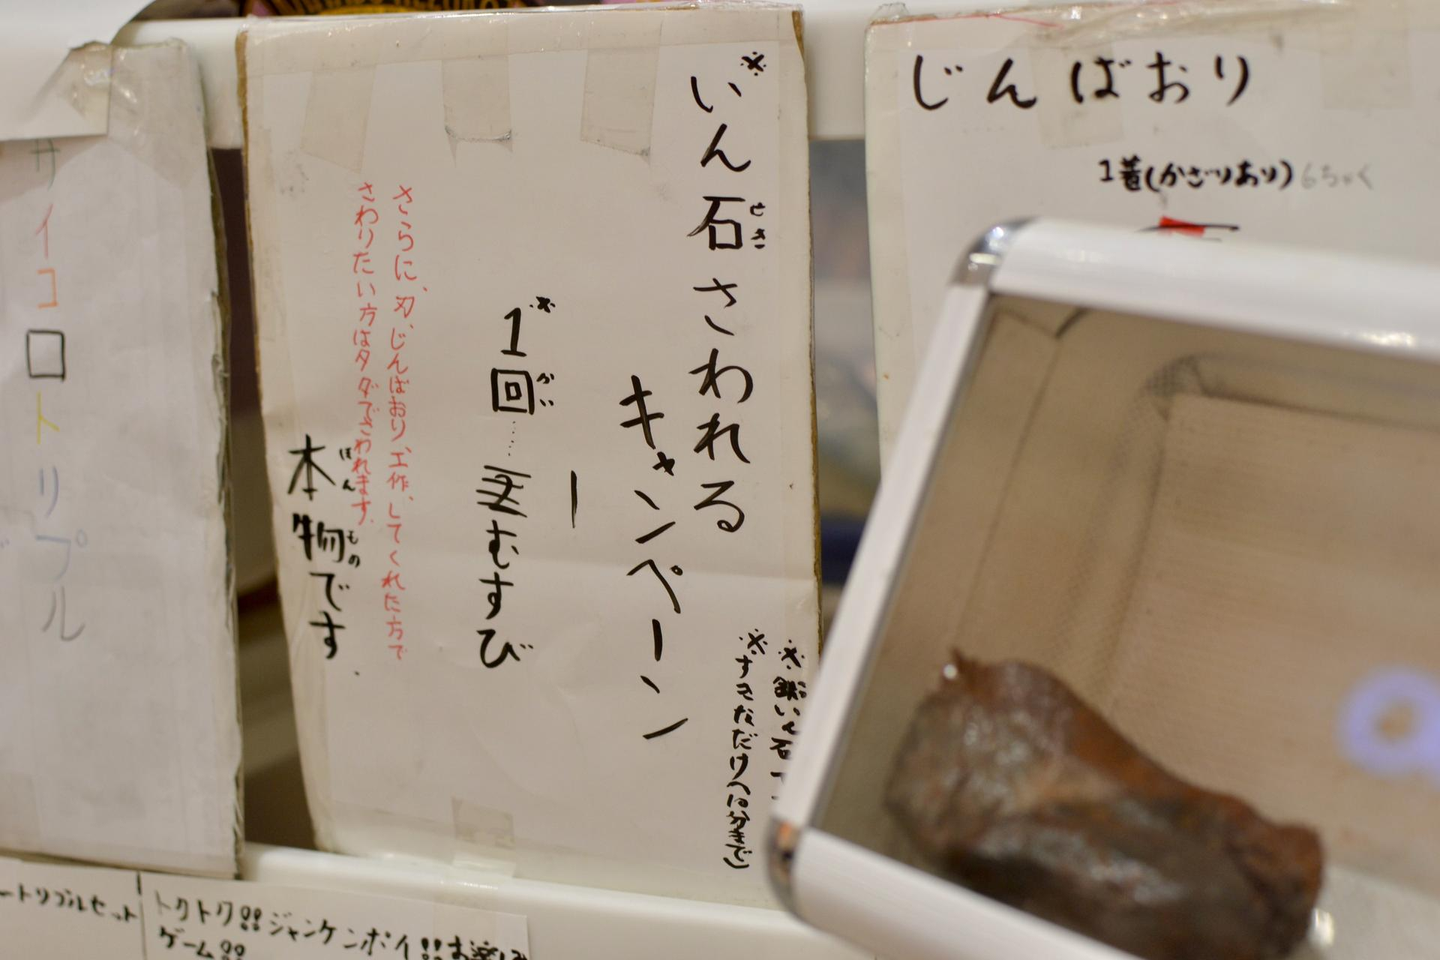 じんばおり
1着(かざりおり)6ちゃく
※
いん石さわれる
せき
キャンペーン
※鉄いん石で
※すきなだけ(10分まで)
※
1回……むすび
かい
さらに、刃、じんばおり、工作、してくれた方で
さわりたい方はタダでさわれます。
本物です.
ほんもの
サイコロトリプル
ートリプルセット
トクトク!!ジャンケンポイ!!お楽しみ
ゲーム!!